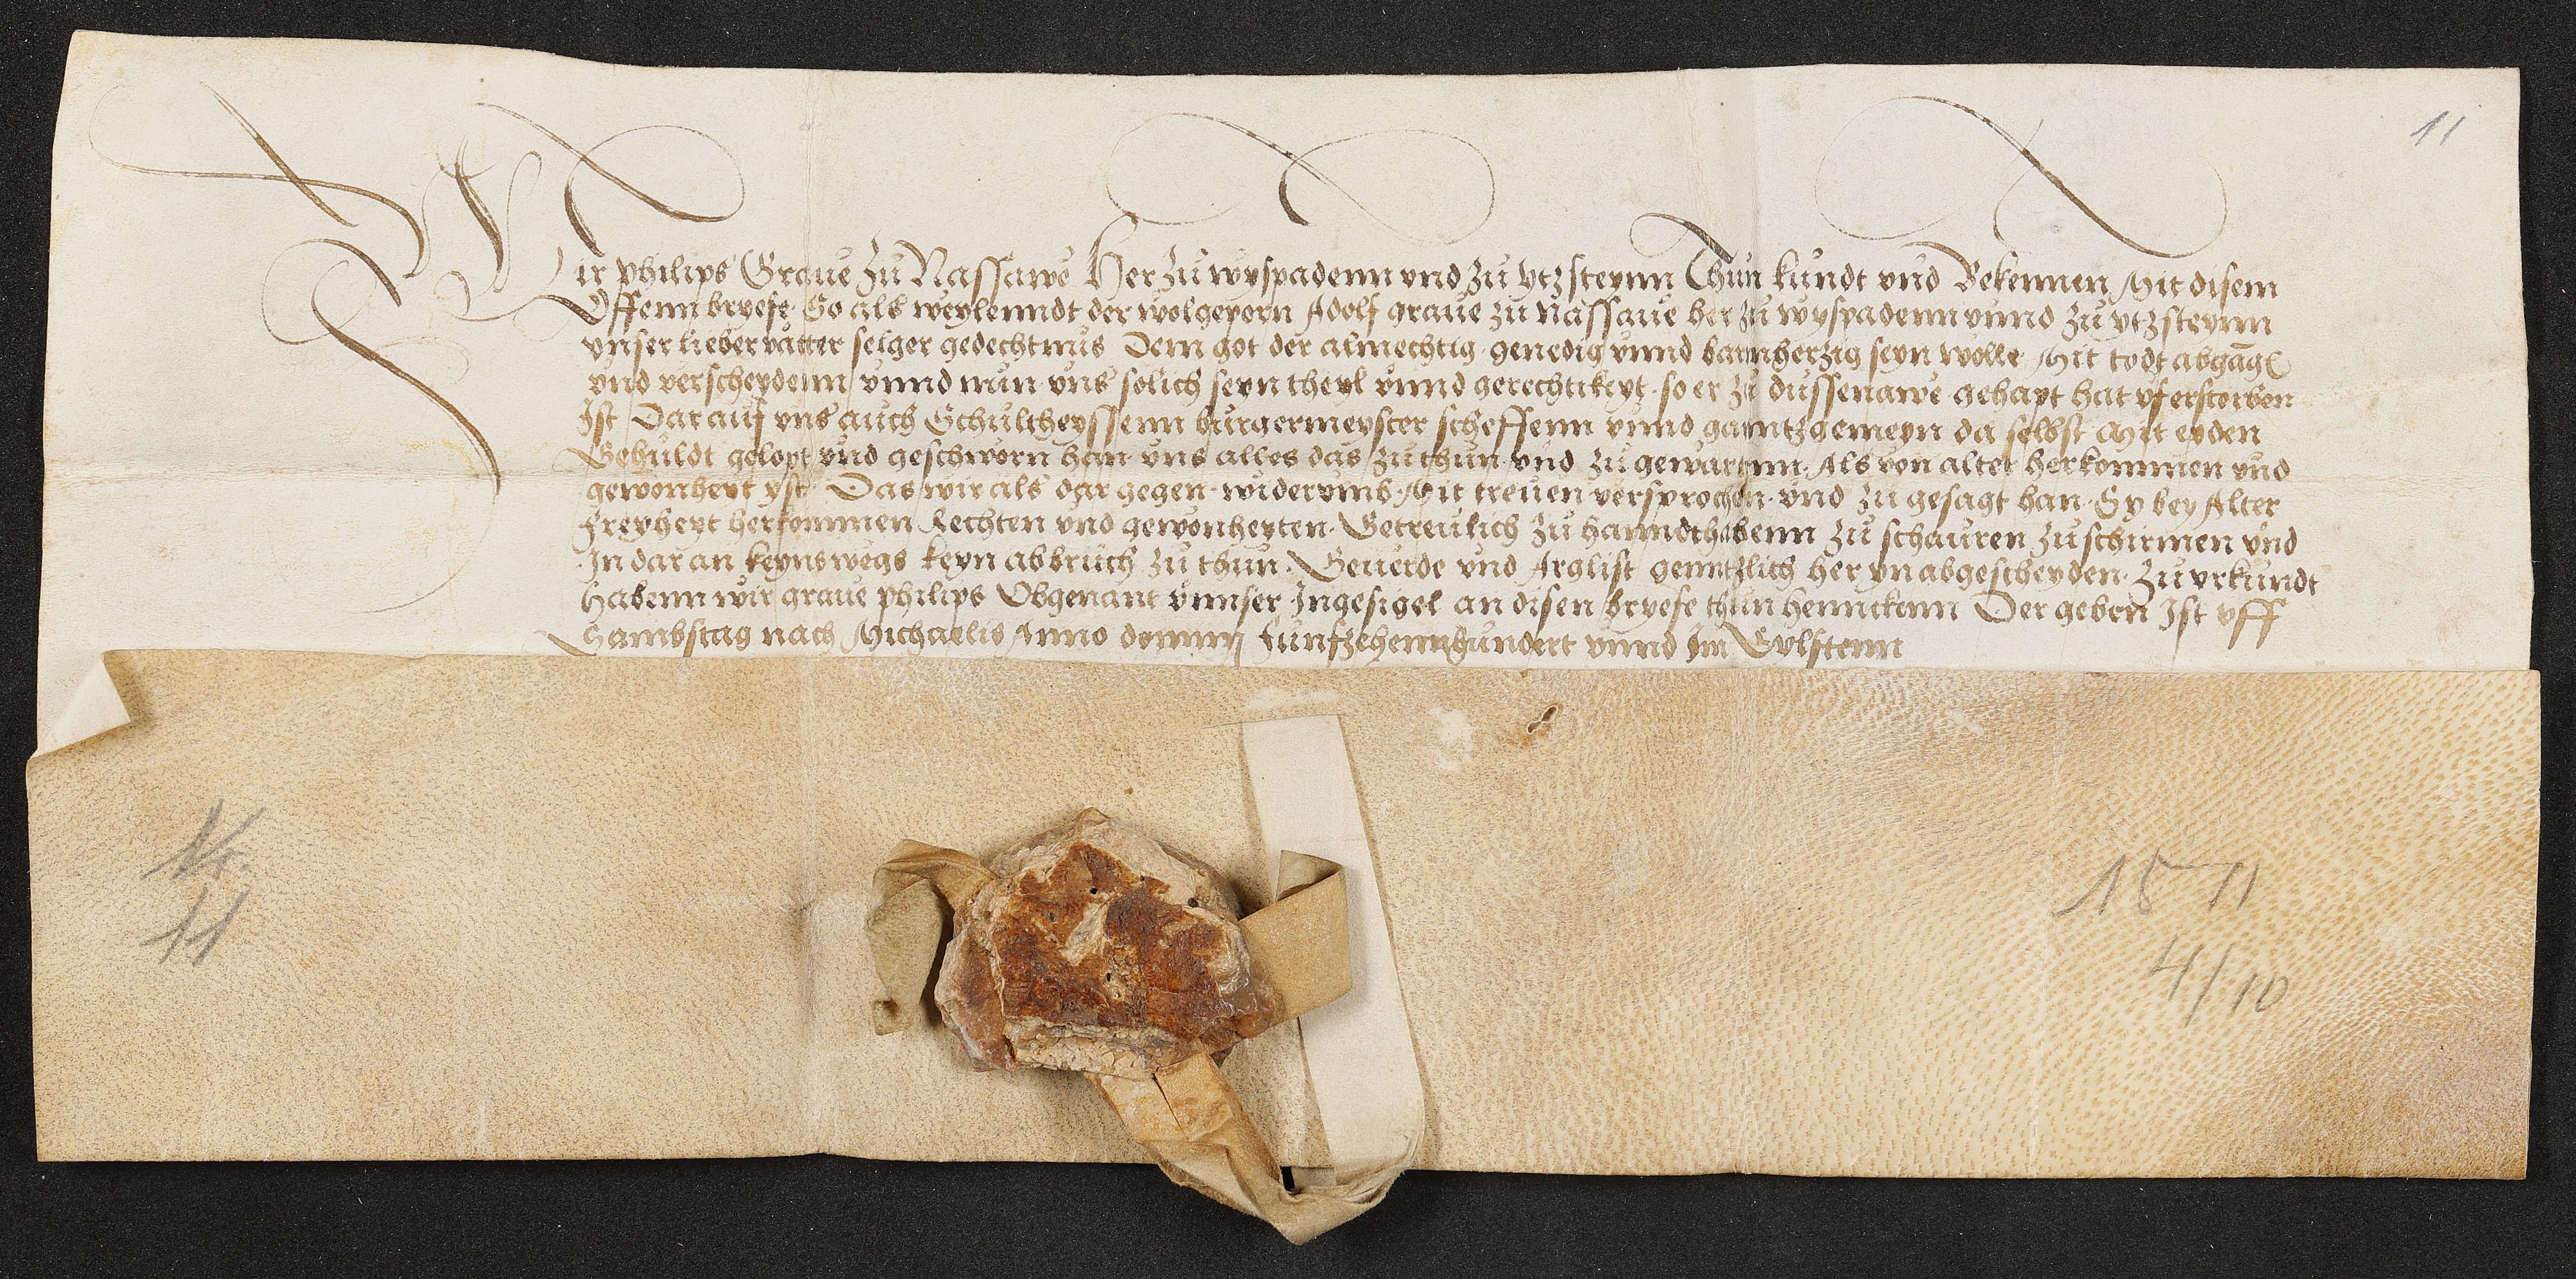 11
Wir philips Graue zu Nassawe Her zu wyspadenn vnd zu ytzsteynn Thun kundt vnd Bekennen Mit disem
Offenn bryefe So als weylenndt der wolgeporn Adolf graue zu Nassaue her zu wyspadenn vnnd zu ytzsteynn
vnser lieber vatter selger gedechtnus Dem got der almechtig genedig vnnd barmherzig seyn wolle Mit todt abgāg
vnd verscheydenn vnnd nun vns solich seyn theyl vnnd gerechtikeyt so er zu dussenawe gehapt hat vferstorben
Ist Darauf vns auch Schultheyssenn burgermeyster scheffenn vnnd ganntz gemeyn da selbst Mit eyden
Gehuldt gelopt vnd geschworn han vns alles das zu thun vnd zu gewartenn Als von alter herkommen vnd
gewonheyt yst Das wir als dar gegen widervmb Mit treuen versprochen vnd zu gesagt han Sy bey Alter
Freyheyt herkommen Rechten vnd gewonheyten Getreulich zu hanndthabenn zu schauren zu schirmen vnd
In dar an keynswegs keyn abbruch zu thun Geuerde vnd Arglist genntzlich her yn abgescheyden Zu vrkundt
Habenn wir graue philips Obgenant vnnser Ingesigel an disen bryefe thun henncken Der geben Ist vff
Sambstag nach Michaelis Anno domini funfzehennhundert vnnd Im Eylftenn
Nr.
11
1511
4/10